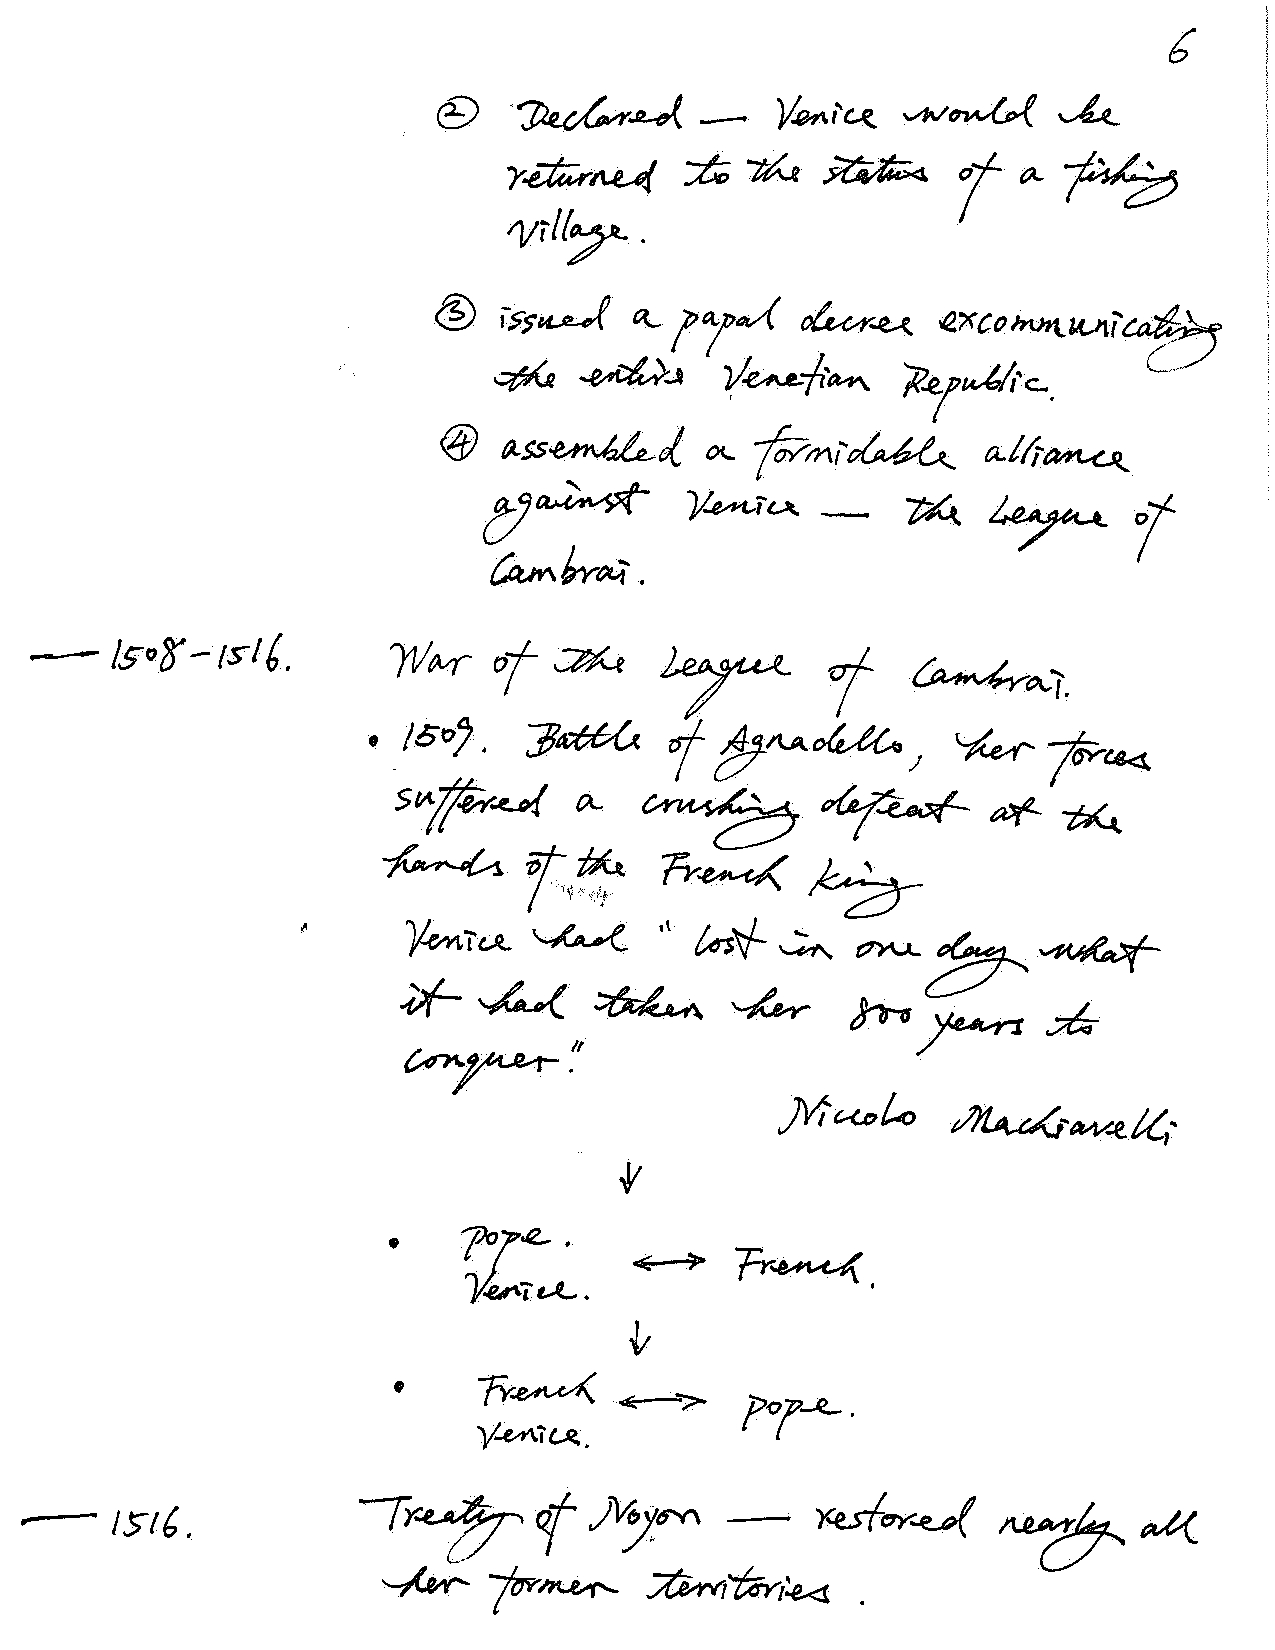 6
② Declared — Venice would be
returned to the status of a fishing
village.
③ issued a papal decree excommunicating
the entire Venetian Republic.
④ assembled a formidable alliance
against Venice — the League of
Cambrai.
— 1508-1516. War of the League of Cambrai.
• 1509. Battle of Agnadello, her forces
suffered a crushing defeat at the
hands of the French king
Venice had "lost in one day what
it had taken her 800 years to
conquer."
Niccolo Machiavelli
↓
• pope.
Venice. ↔ French.
↓
• French ↔ pope.
Venice.
— 1516. Treaty of Noyon — restored nearly all
her former territories.